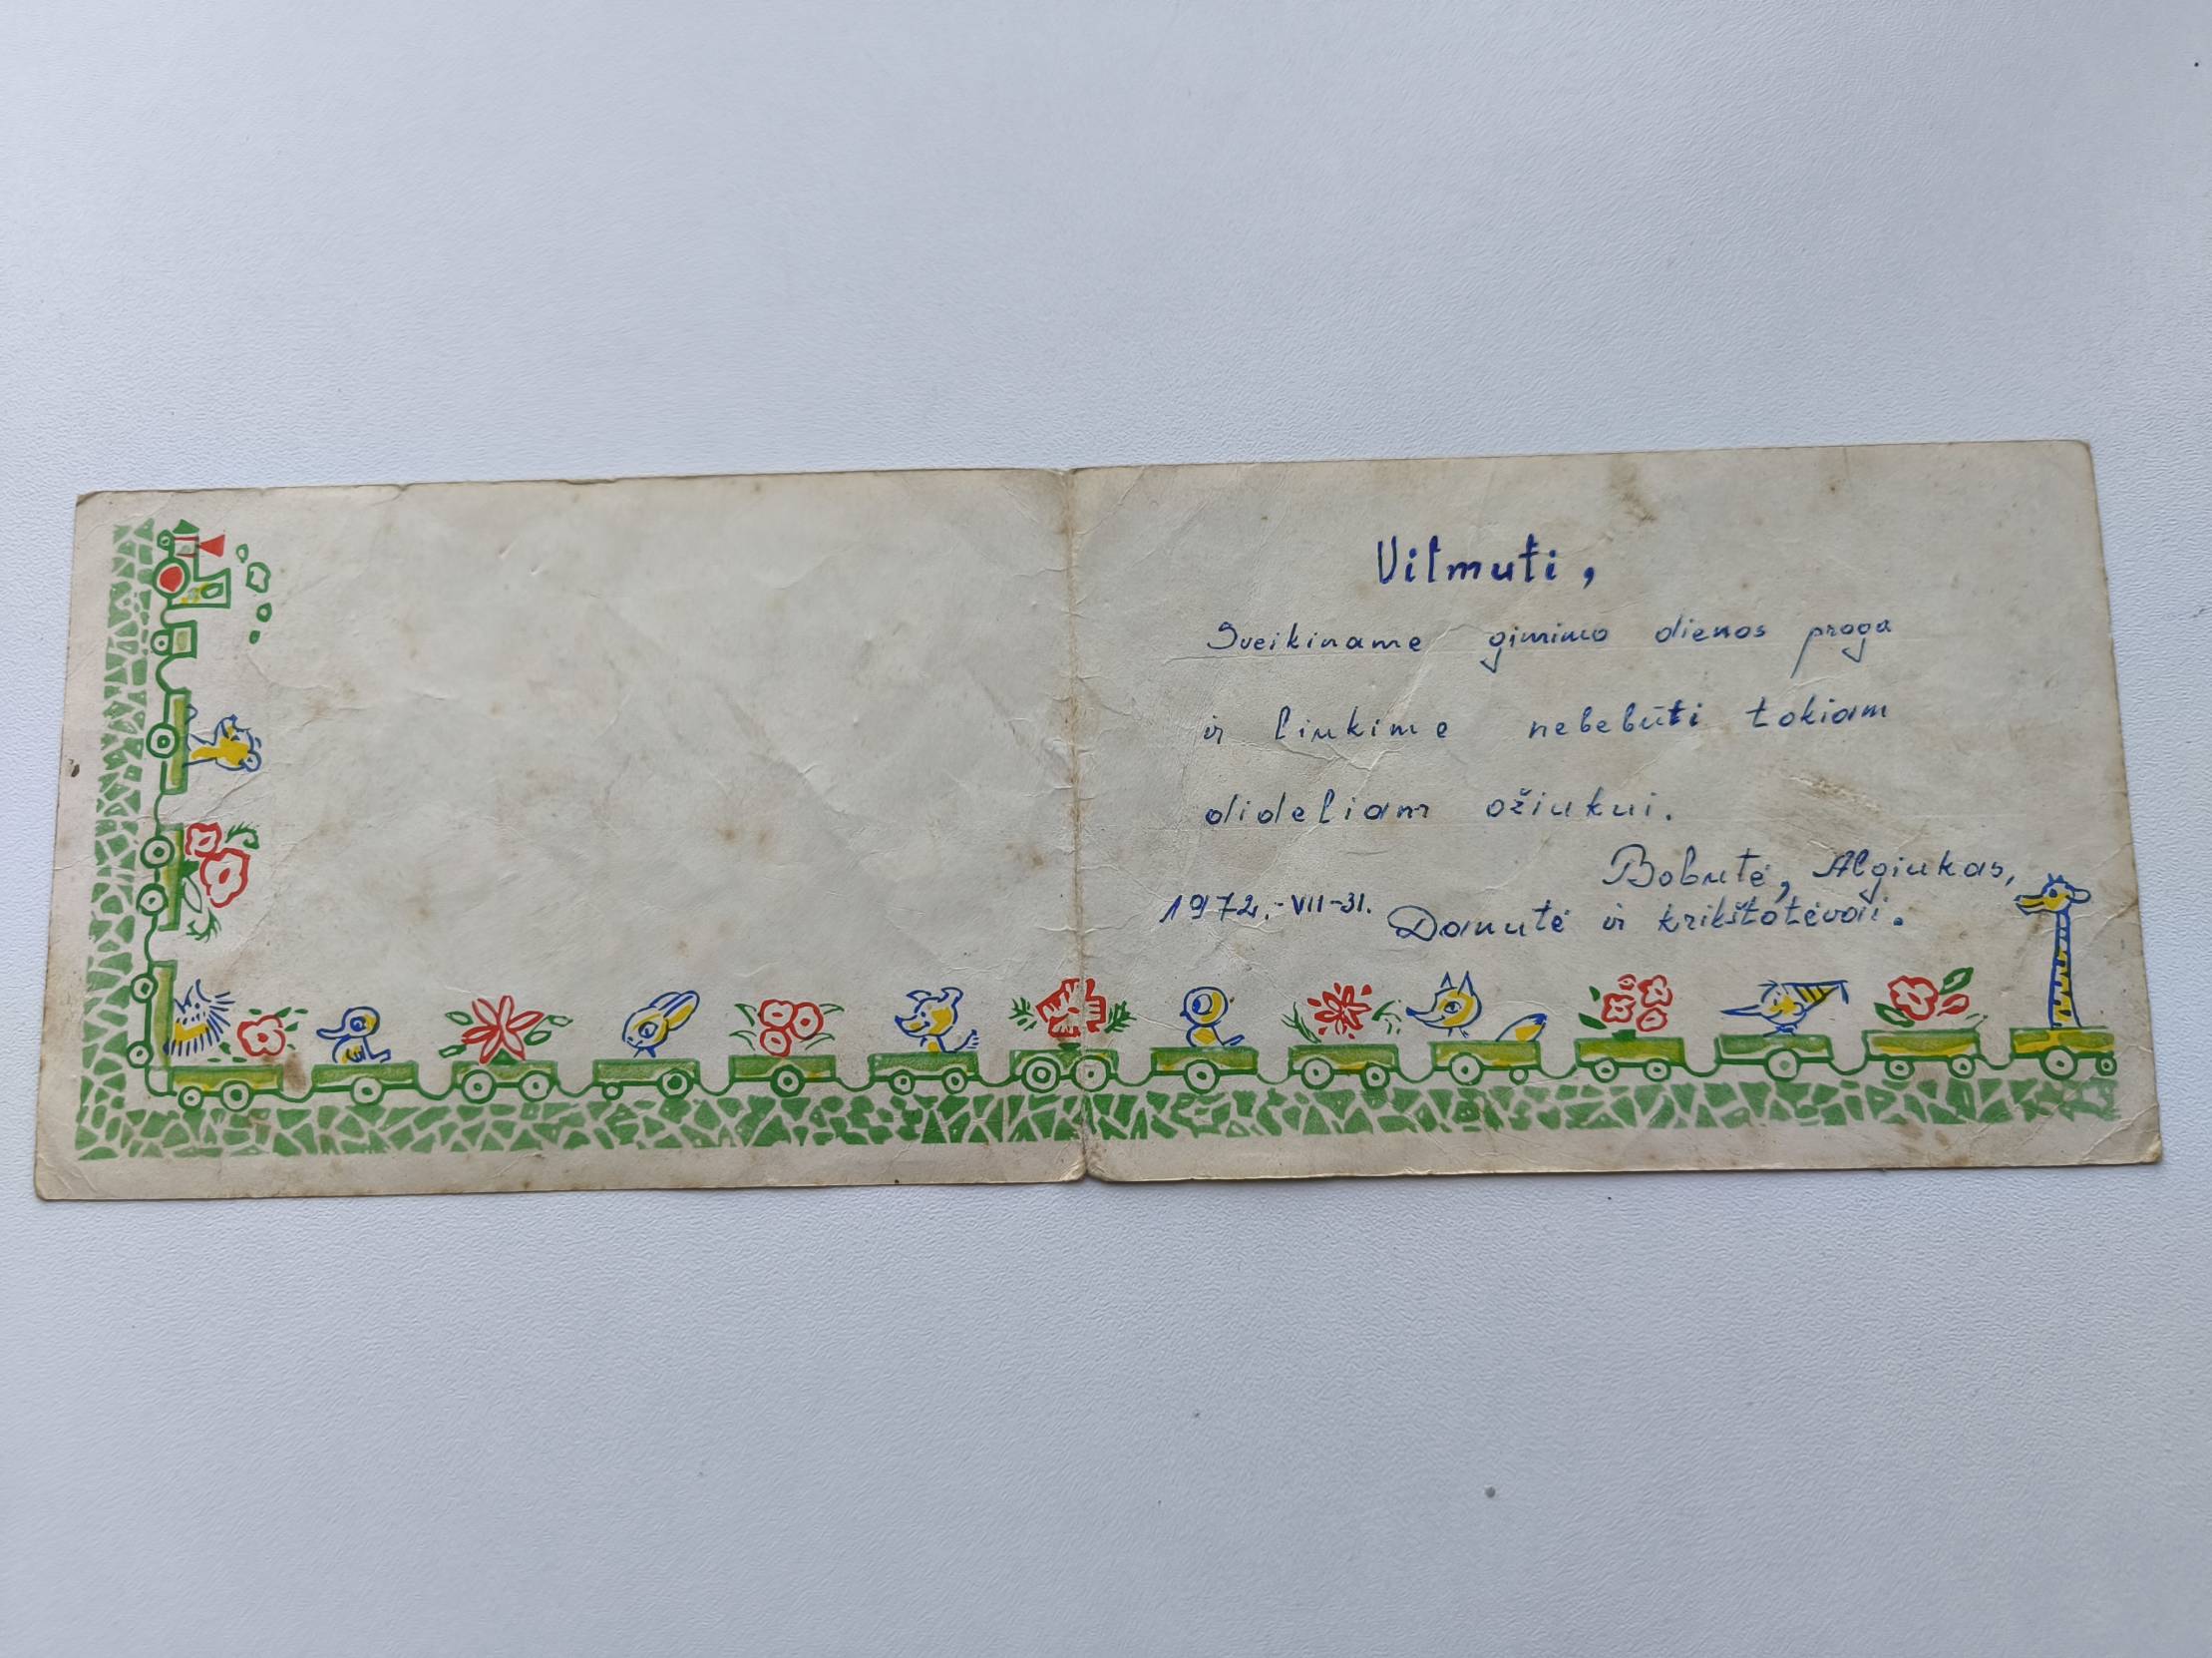 Vilmuti,
Sveikiname gimimo dienos proga
ir linkime nebebūti tokiam
dideliam ožiukui.
Bobutė, Algiukas,
1972.-VII-31. Danutė ir krikštotėvai.